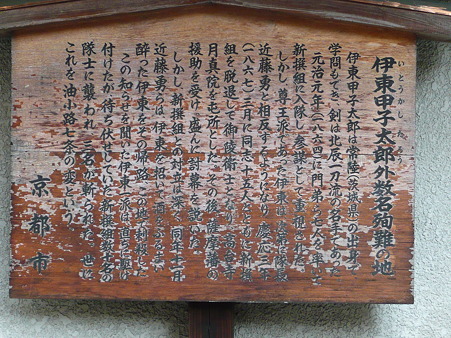 いとうかしたろう
伊東甲子太郎外数名殉難の地
伊東甲子太郎は常陸(茨城県)の出身で、
学問もでき、剣は北辰一刀流の名手であった。
元治元年(一八六四)に門弟ら七人を率いて
新撰組に入隊し、参謀として重視された。
しかし、尊王派であった伊東は、新撰組長
近藤勇らと相反するようになり、慶応三年
(一八六七)三月に同志十五人とともに新撰
組を脱退して御陵衛士となり、高台寺
月真院を屯所とした。その後、薩摩藩の
援助を受け、盛んに討幕を説いた。
しかし、新撰組との対立は深く、同年十一月
近藤勇らは、伊東を招いて酒をふるまい
酔った伊東をその帰路、この地で刺殺した。
この知らせを聞いた伊東一派は直ちに駆け
付けたが、待ち伏せしていた新撰組数十名の
隊士に襲われ、三名が斬られた。世に
これを油小路七条の変という。
京都市